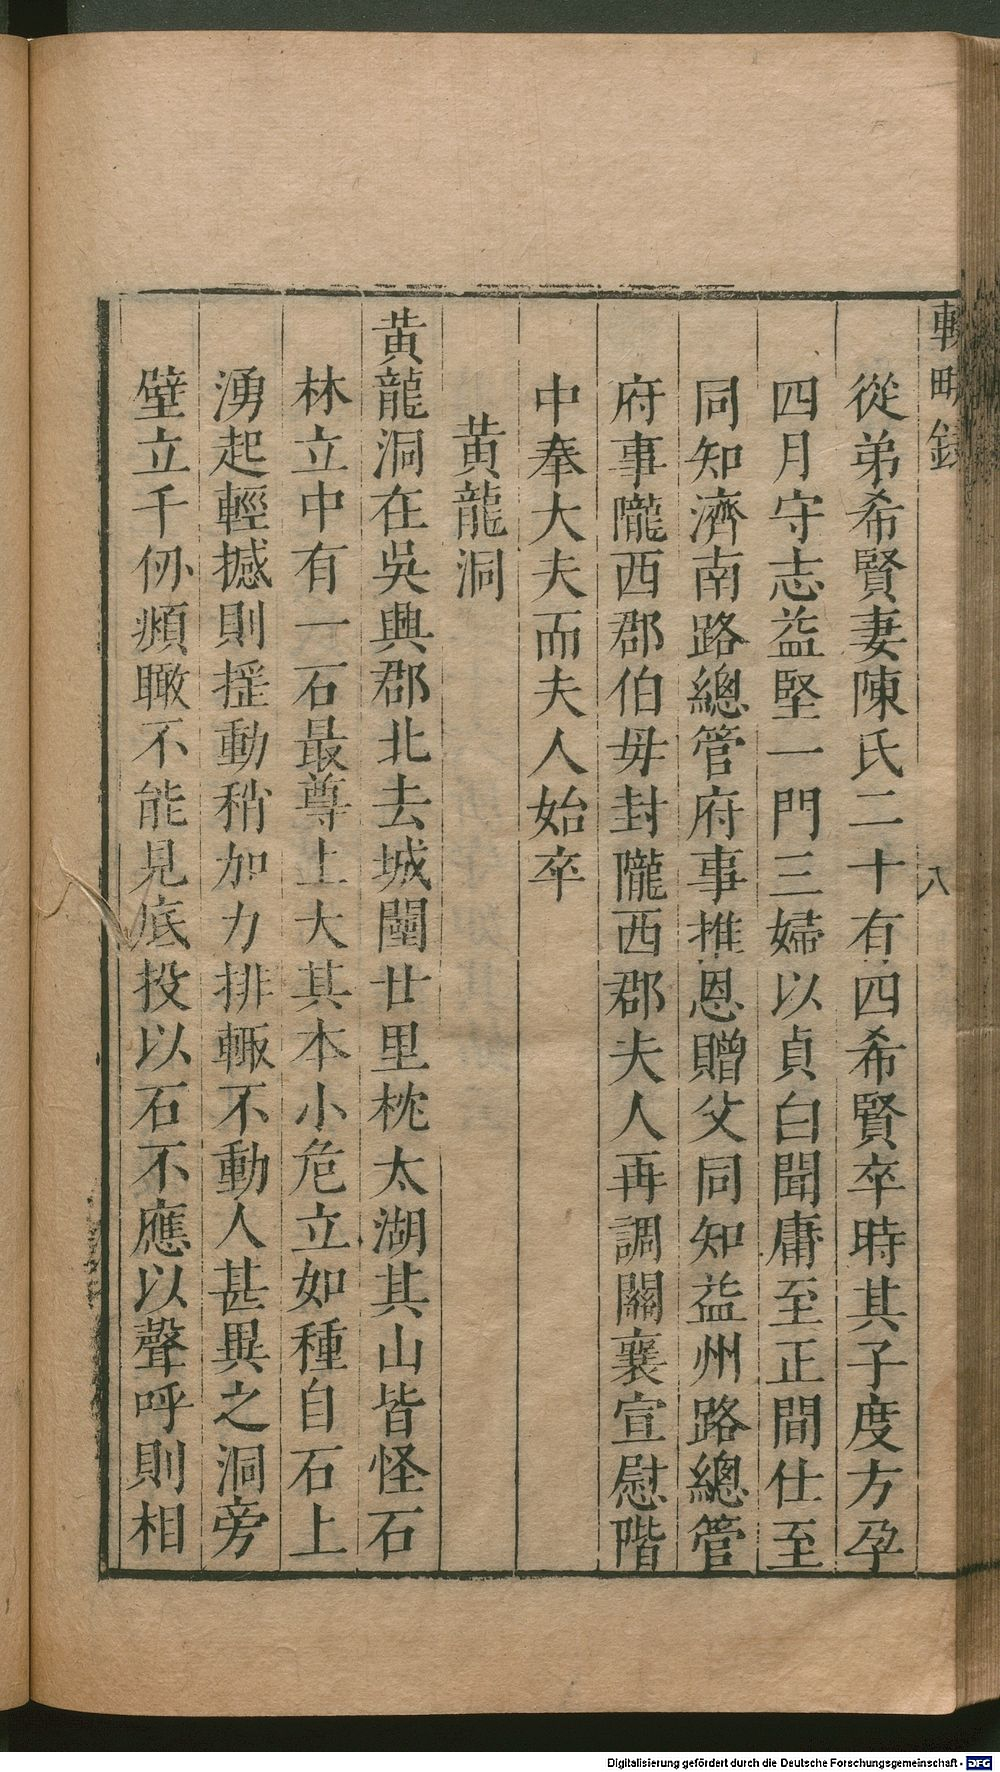 輟畊錄
八
從弟希賢妻陳氏二十有四希賢卒時其子度方孕
四月守志益堅一門三婦以貞白聞庸至正間仕至
同知濟南路總管府事推恩贈父同知益州路總管
府事隴西郡伯毋封隴西郡夫人再調關襄宣慰階
中奉大夫而夫人始卒
黄龍洞
黄龍洞在吳興郡北去城闉廿里枕太湖其山皆怪石
林立中有一石最尊上大其本小危立如種自石上
湧起輕撼則揺動稍加力排輙不動人甚異之洞旁
壁立千仞頫瞰不能見底投以石不應以聲呼則相
Digitalisierung gefördert durch die Deutsche Forschungsgemeinschaft - DFG